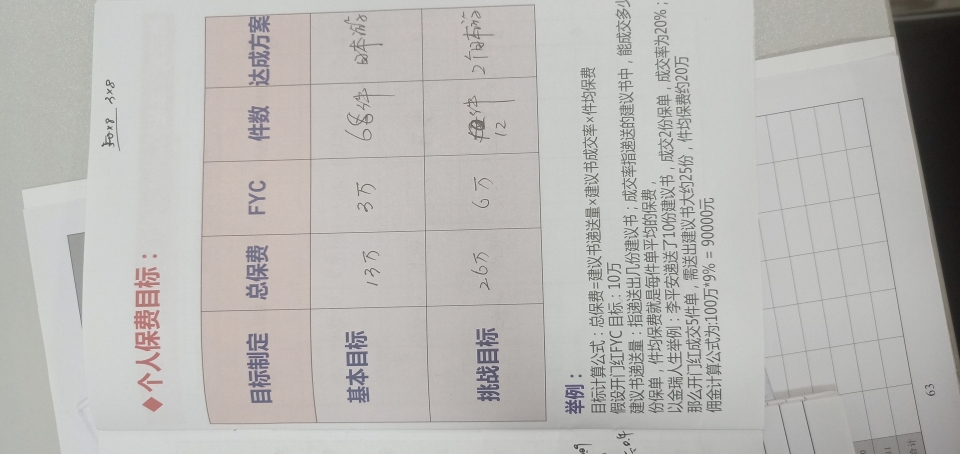 ◆ 个人保费目标：
目标制定 总保费 FYC 件数 达成方案
基本目标 13万 3万 68件 日本游
挑战目标 26万 6万 12件 2个日本游
举例：
目标计算公式：总保费=建议书递送量×建议书成交率×件均保费
假设开门红FYC 目标：10万
建议书递送量：指递送出几份建议书；成交率指递送的建议书中，能成交多少
份保单，件均保费就是每件单平均的保费，
以金瑞人生举例：李平安递送了10份建议书，成交2份保单，成交率为20%；
那么开门红成交5件单，需送出建议书大约25份，件均保费约20万
佣金计算公式为:100万*9% = 90000元
63